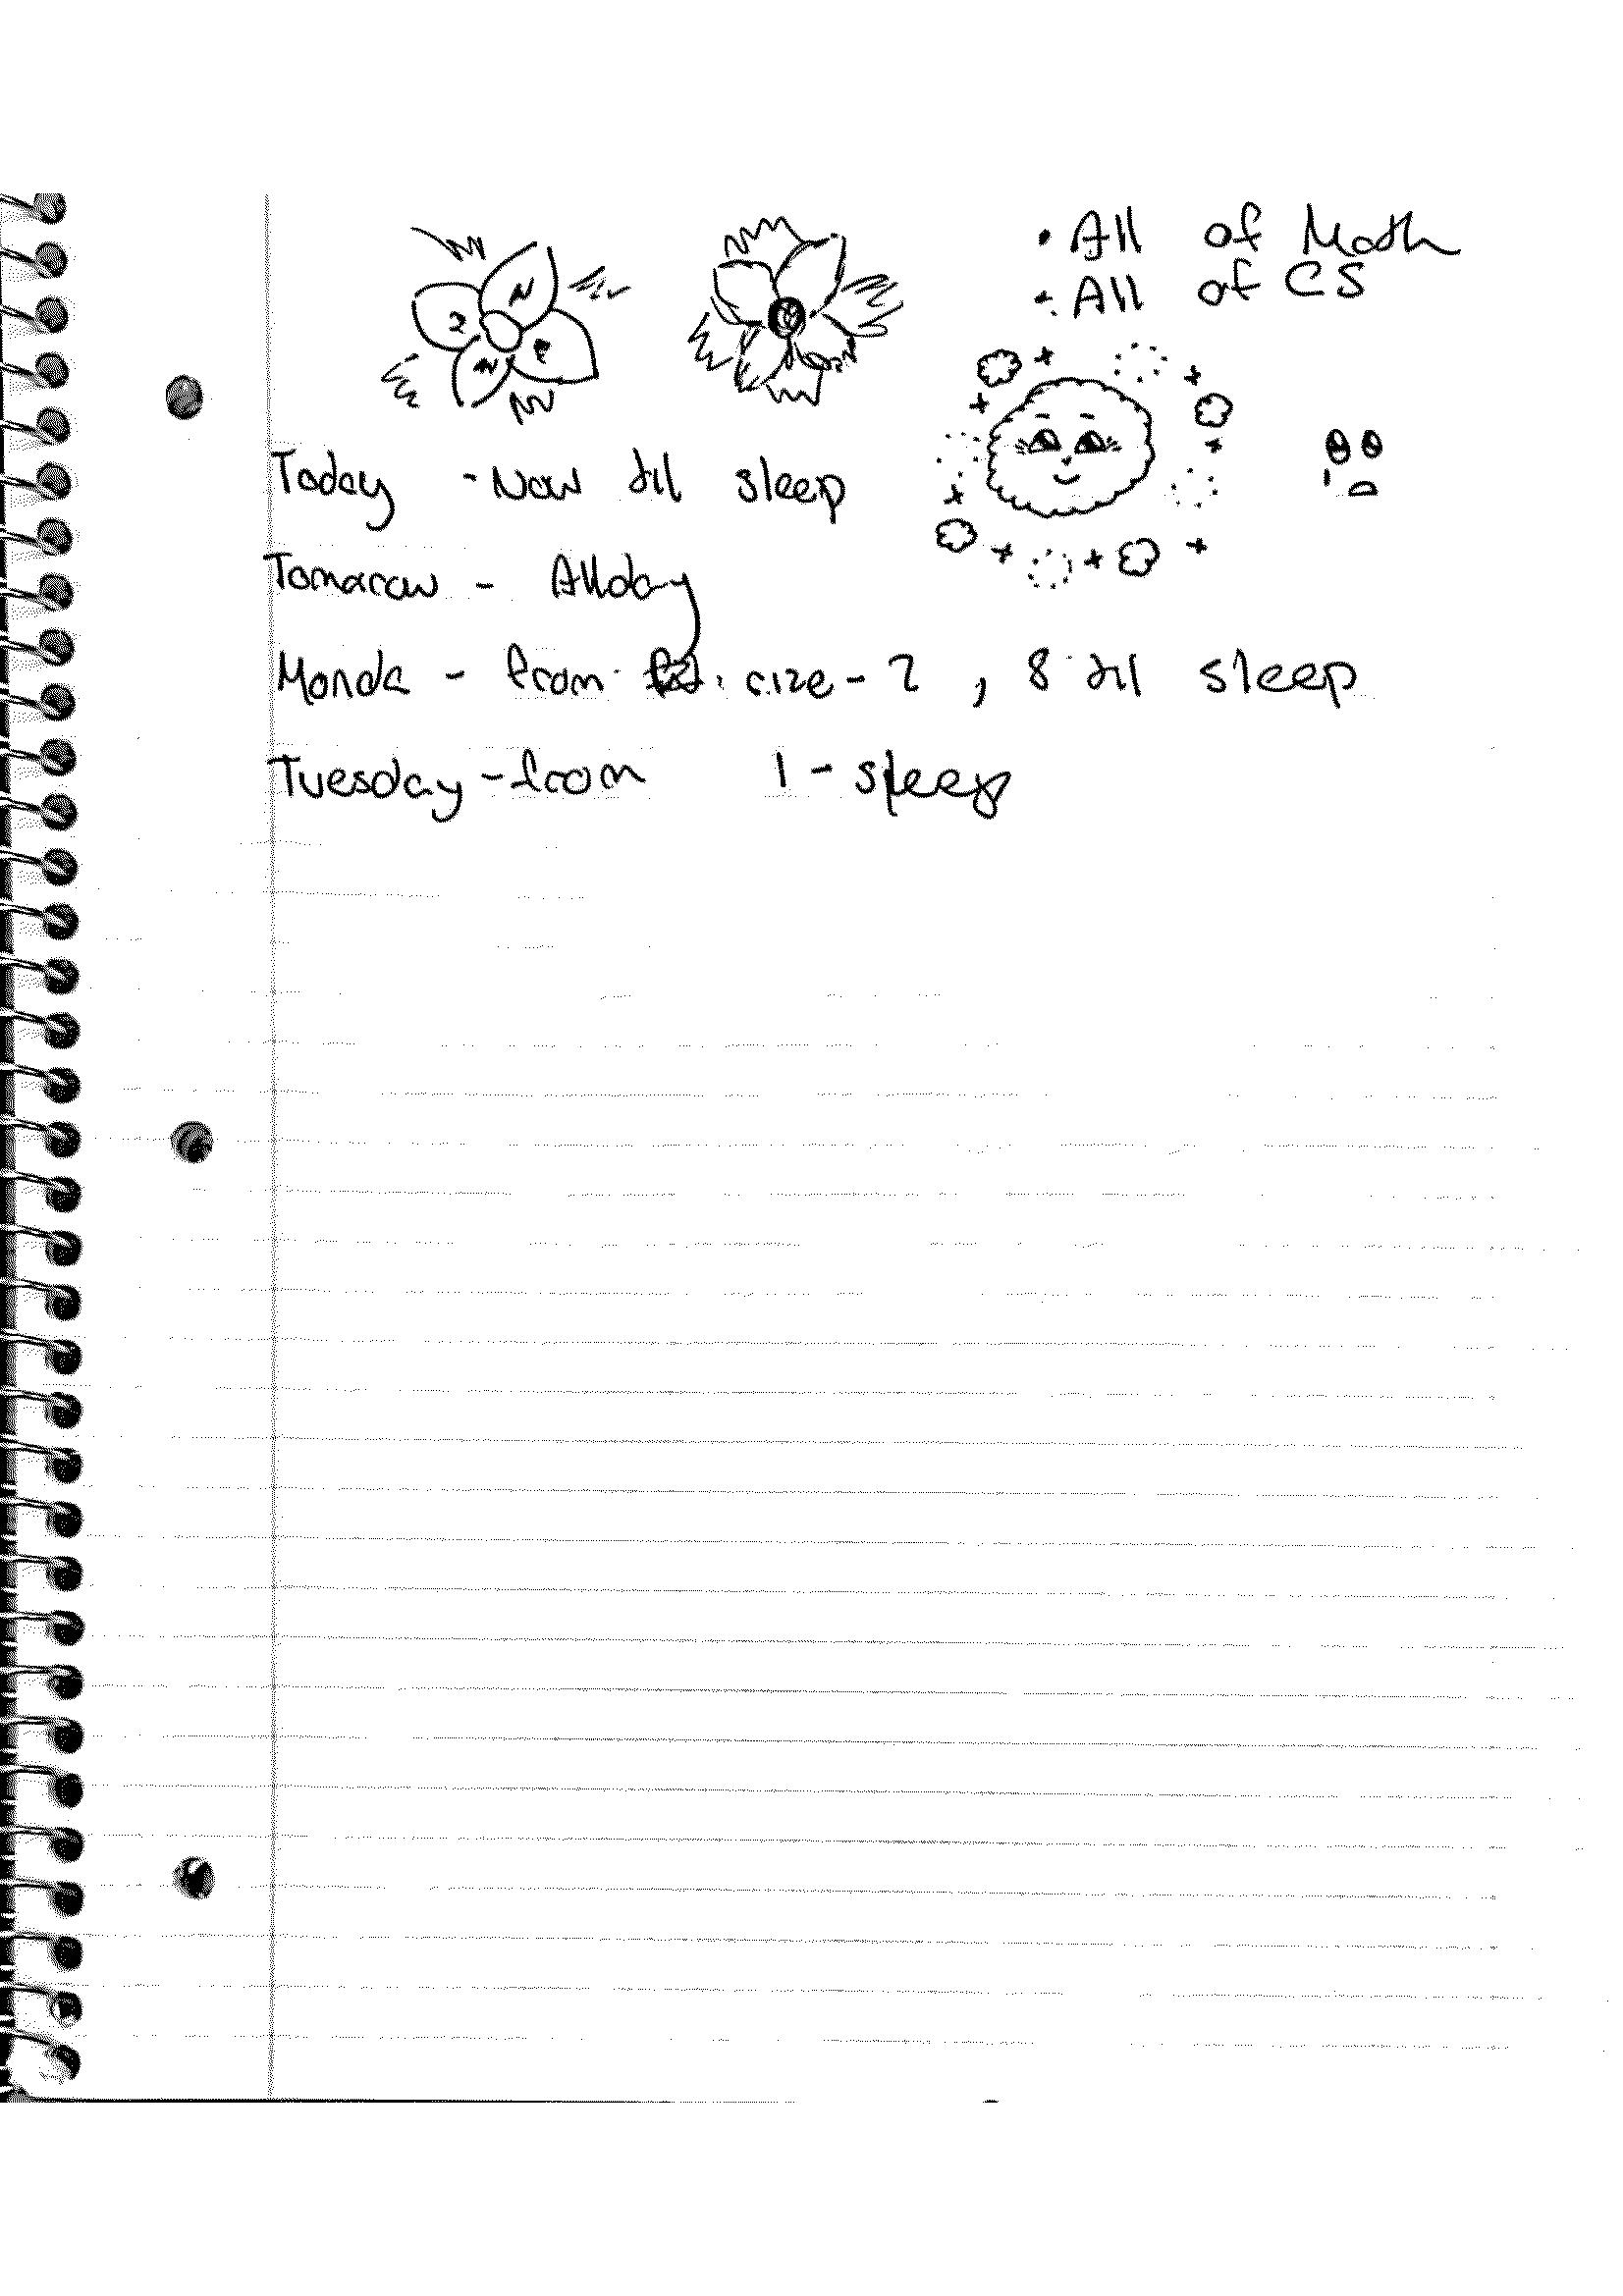 • All of Math
• All of CS
Today - Now till sleep
Tomarow - Allday
Monda - from rize - 2 , 8 till sleep
Tuesday - from 1 - sleep